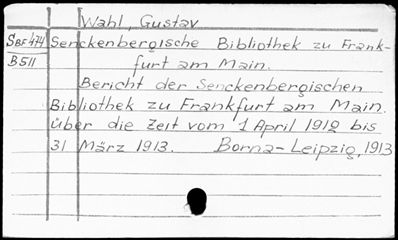 Wahl, Gustav
SBF 474 Senckenbergische Bibliothek zu Frank-
B511 furt am Main.
Bericht der Senckenbergischen
Bibliothek zu Frankfurt am Main.
über die Zeit vom 1 April 1912 bis
31 März 1913. Borna-Leipzig, 1913